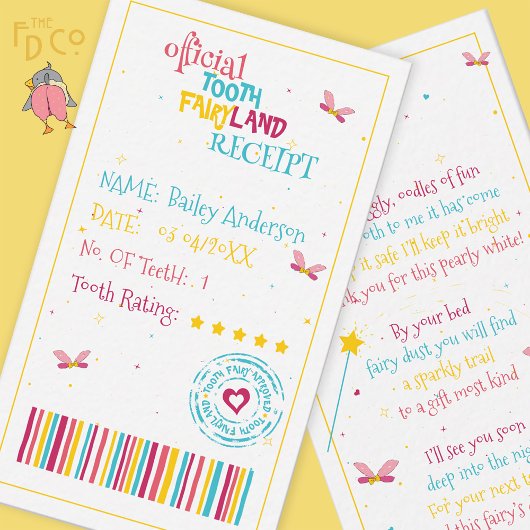 THE
FD CO.
official
TOOTH
FAIRYLAND
RECEIPT
NAME: Bailey Anderson
DATE: 03/04/20XX
No. OF TeetH: 1
Tooth Rating:
TOOTH FAIRY APPROVED
TOOTH FAIRYLAND
oodles of fun
to me it has come
it safe I'll keep it bright
you for this pearly white!
By your bed
fairy dust you will find
a sparkly trail
to a gift most kind
I'll see you soon
deep into the
For your next
this fairy's